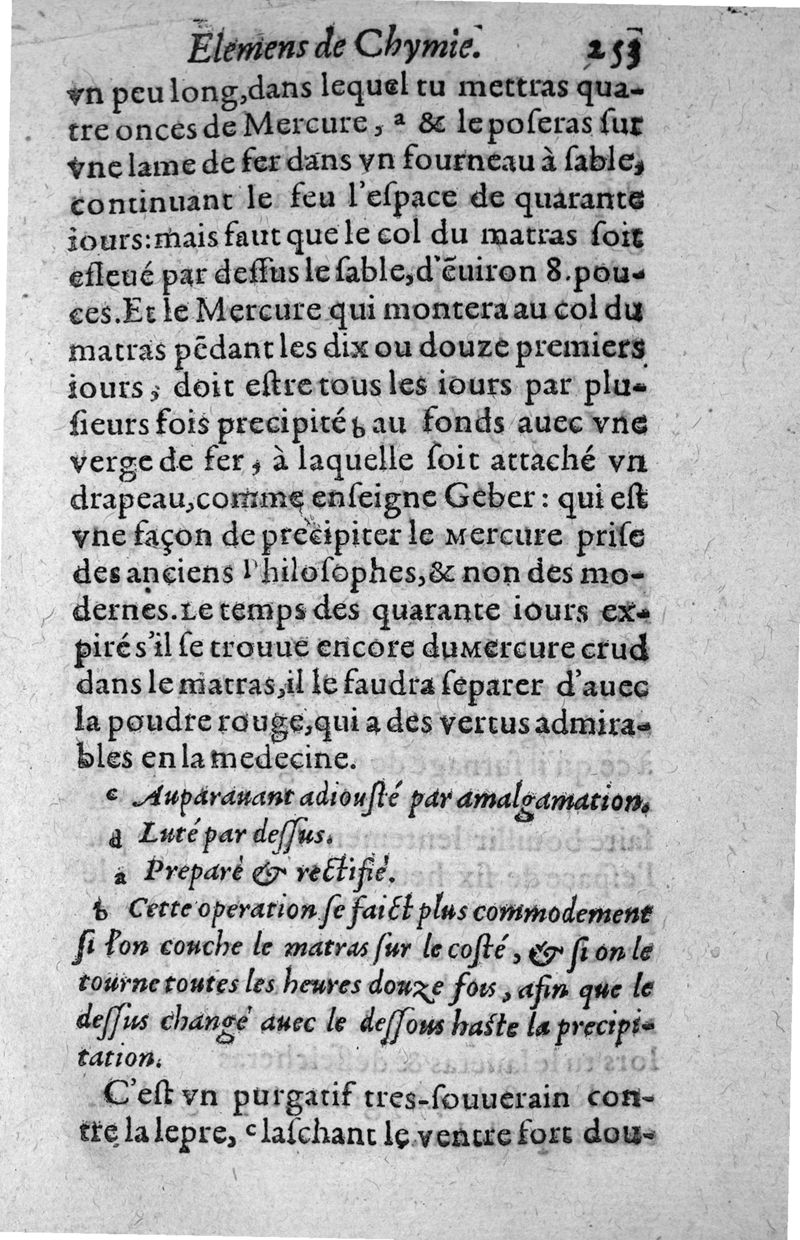 Elemens de Chymie. 253
vn peu long,dans lequel tu mettras qua-
tre onces de Mercure, ª & le poſeras ſur
vne lame de fer dans vn fourneau à ſable,
continuant le feu l'eſpace de quarante
iours:mais faut que le col du matras ſoit
eſleué par deſſus le ſable,d'ẽuiron 8.pou-
ces.Et le Mercure qui montera au col du
matras pẽdant les dix ou douze premiers
iours, doit eſtre tous les iours par plu-
ſieurs fois precipité b au fonds auec vne
verge de fer, à laquelle ſoit attaché vn
drapeau,comme enſeigne Geber: qui eſt
vne façon de precipiter le Mercure priſe
des anciens Philoſophes,& non des mo-
dernes.Le temps des quarante iours ex-
piré s'il ſe trouue encore du Mercure crud
dans le matras,il le faudra ſeparer d'auec
la poudre rouge,qui a des vertus admira-
bles en la medecine.
c Auparauant adiouſté par amalgamation.
d Luté par deſſus.
a Preparé & rectifié.
b Cette operation ſe faict plus commodement
ſi l'on couche le matras ſur le coſté, & ſi on le
tourne toutes les heures douze fois, afin que le
deſſus changé auec le deſſous haſte la precipi-
tation.
C'eſt vn purgatif tres-ſouuerain con-
tre la lepre, c laſchant le ventre fort dou-